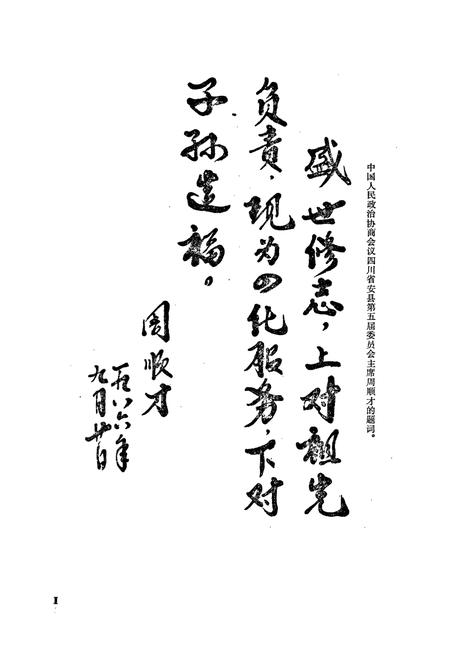 中国人民政治协商会议四川省安县第五届委员会主席周顺才的题词。
盛世修志，上对祖先
负责，现为四化服务，下对
子孙造福。
周顺才
一九八六年
九月廿日
I